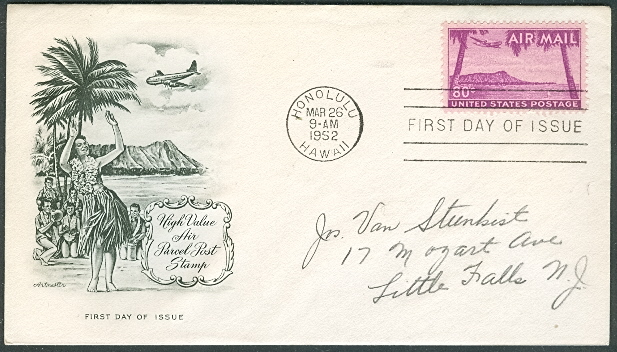 AIR MAIL
80¢
UNITED STATES POSTAGE
HONOLULU
MAR 26
9-AM
1952
HAWAII
FIRST DAY OF ISSUE
High Value
Air
Parcel Post
Stamp
Artcraft
FIRST DAY OF ISSUE
Js. Van Steenkist
17 Mozart Ave
Little Falls N.J.